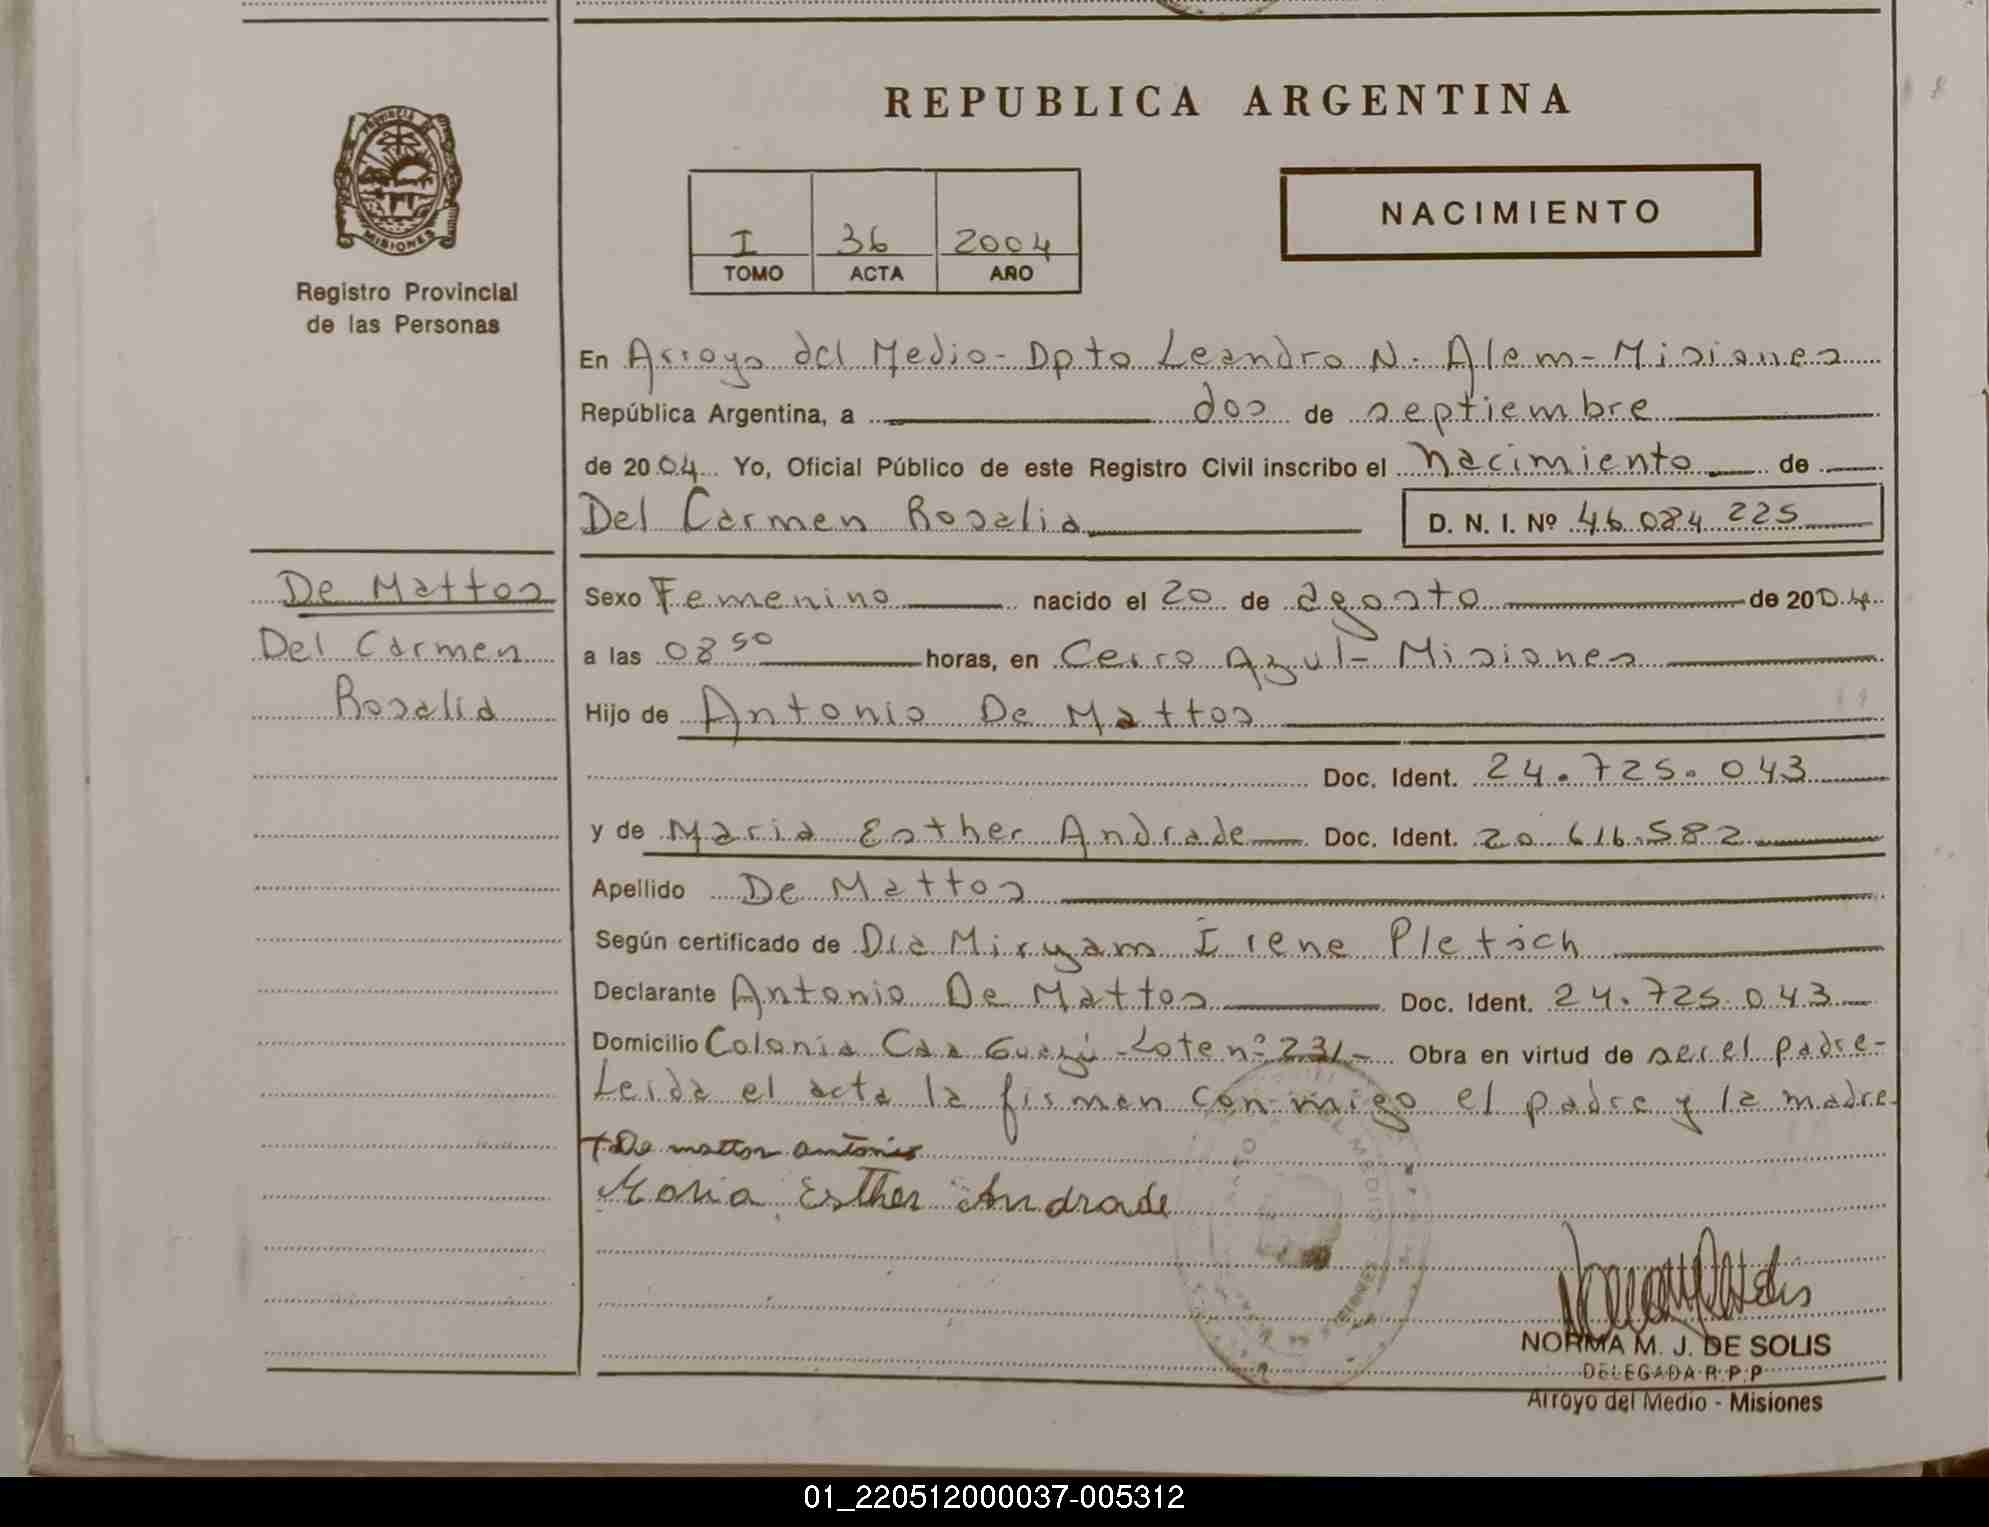 REPUBLICA ARGENTINA
PROVINCIA DE
MISIONES
Registro Provincial
de las Personas
I 36 2004
TOMO ACTA AÑO
NACIMIENTO
En Arroyo del Medio - Dpto Leandro N. Alem - Misiones
República Argentina, a dos de septiembre
de 2004 Yo, Oficial Público de este Registro Civil inscribo el nacimiento de
Del Carmen Rosalia D. N. I. Nº 46.084.225
De Mattos
Del Carmen
Rosalia
Sexo Femenino nacido el 20 de agosto de 2004
a las 08 50 horas, en Cerro Azul - Misiones
Hijo de Antonio De Mattos
Doc. Ident. 24.725.043
y de Maria Esther Andrade Doc. Ident. 20.616.582
Apellido De Mattos
Según certificado de Dra Miryam Irene Pletsch
Declarante Antonio De Mattos Doc. Ident. 24.725.043
Domicilio Colonia Caa Guazú - Lote nº 231 - Obra en virtud de ser el padre -
Leida el acta la firman conmigo el padre y la madre -
+ De mattos antonio
Maria Esther Andrade
NORMA M. J. DE SOLIS
DELEGADA R.P.P
Arroyo del Medio - Misiones
01_220512000037-005312